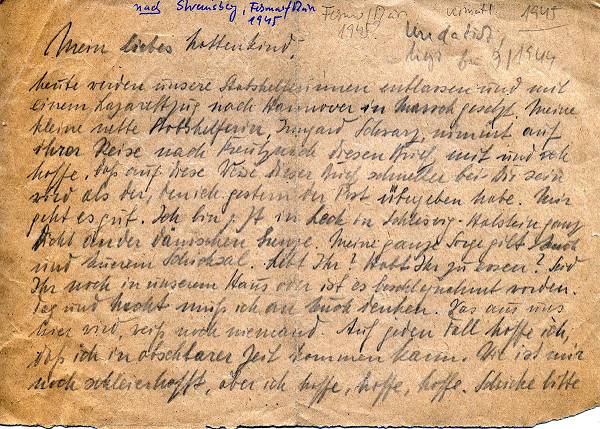 nach Strausberg, Februar/März 1945
Februar/März 1945
1945
Undatiert
Mein liebes Lottenkind!
heute werden unsere Stabshelferinnen entlassen und mit
einem Lazarettzug nach Hannover in Marsch gesetzt. Meine
kleine nette Stabshelferin, Irmgard Schwarz, nimmt auf
ihrer Reise nach Kreuznach diesen Brief mit und ich
hoffe, daß auf diese Weise dieser Brief schneller bei Dir sein
wird als der, den ich gestern der Post übergeben habe. Mir
geht es gut. Ich bin z. Zt. in Leck in Schleswig-Holstein ganz
dicht an der dänischen Grenze. Meine ganze Sorge gilt Euch
und Eurem Schicksal. Lebt Ihr? Habt Ihr zu essen? Seid
Ihr noch in unserem Haus oder ist es beschlagnahmt worden.
Tag und Nacht muß ich an Euch denken. Was aus uns
hier wird, weiß noch niemand. Auf jeden Fall hoffe ich,
daß ich in absehbarer Zeit kommen kann. Wie ist mir
noch schleierhaft, aber ich hoffe, hoffe, hoffe. Schicke bitte